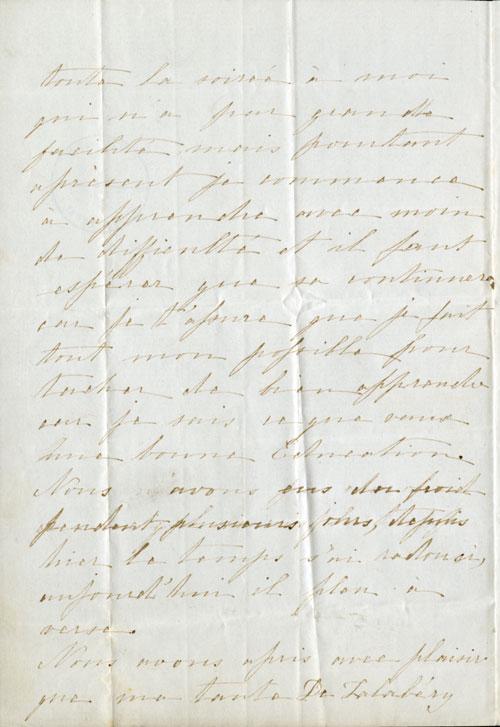 toute la soirée à moi
qui n'a pas grande
facilité mais pourtant
aprésent je commence
à apprendre avec moin
de difficulté et il faut
espérer que sa continuera
car je t'assure que je fait
tout mon possible pour
tacher de bien apprendre
car je sais ce que vaux
une bonne Education.
Nous avons eus du froid
pendent plusieurs jours, depuis
hier le temps s'ai radouci,
aujourd'hui il pleu à
verse.
Nous avons apris avec plaisir
que ma tante De Salabéry